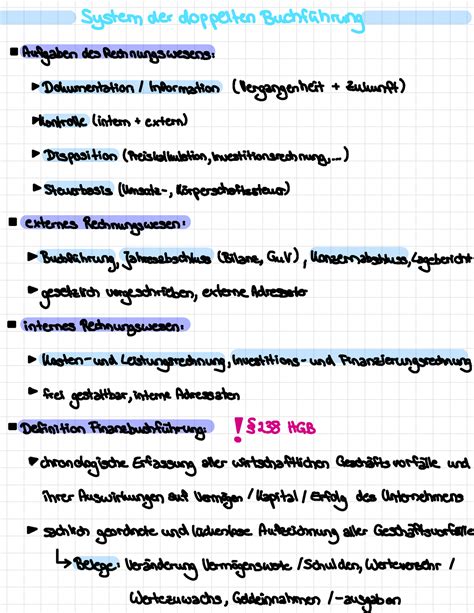 System der doppelten Buchführung
■ Aufgaben des Rechnungswesens:
▶ Dokumentation / Information (Vergangenheit + Zukunft)
▶ Kontrolle (intern + extern)
▶ Disposition (Preiskalkulation, Investitionsrechnung, ...)
▶ Steuerbasis (Umsatz-, Körperschaftssteuer)
■ externes Rechnungswesen:
▶ Buchführung, Jahresabschluss (Bilanz, GuV), Konzernabschluss, Lagebericht
▶ gesetzlich vorgeschrieben, externe Adressaten
■ internes Rechnungswesen:
▶ Kosten- und Leistungsrechnung, Investitions- und Finanzierungsrechnung
▶ frei gestaltbar, interne Adressaten
■ Definition Finanzbuchführung: ! § 238 HGB
▶ chronologische Erfassung aller wirtschaftlichen Geschäftsvorfälle und
ihrer Auswirkungen auf Vermögen / Kapital / Erfolg des Unternehmens
▶ sachlich geordnete und lückenlose Aufzeichnung aller Geschäftsvorfälle
↳ Belege: Veränderung Vermögenswerte / Schulden, Werteverzehr /
Wertezuwachs, Geldeinnahmen / -ausgaben